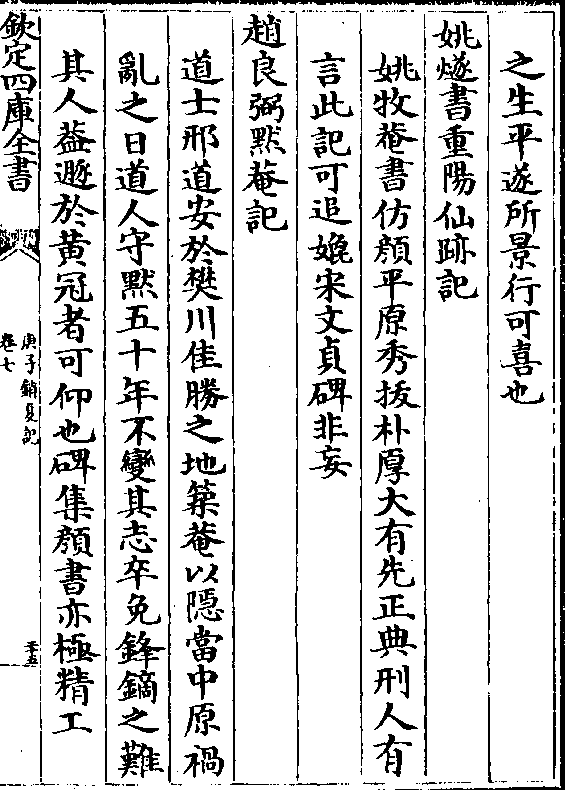 之生平遂所景行可喜也
姚燧書重陽仙跡記
姚牧菴書仿顔平原秀拔朴厚大有先正典刑人有
言此記可追媲宋文貞碑非妄
趙良弼默菴記
道士邢道安於樊川佳勝之地築菴以隱當中原禍
亂之日道人守默五十年不變其志卒免鋒鏑之難
其人葢遯於黄冠者可仰也碑集顔書亦極精工
欽定四庫全書
庚子銷夏記
卷七
三十五